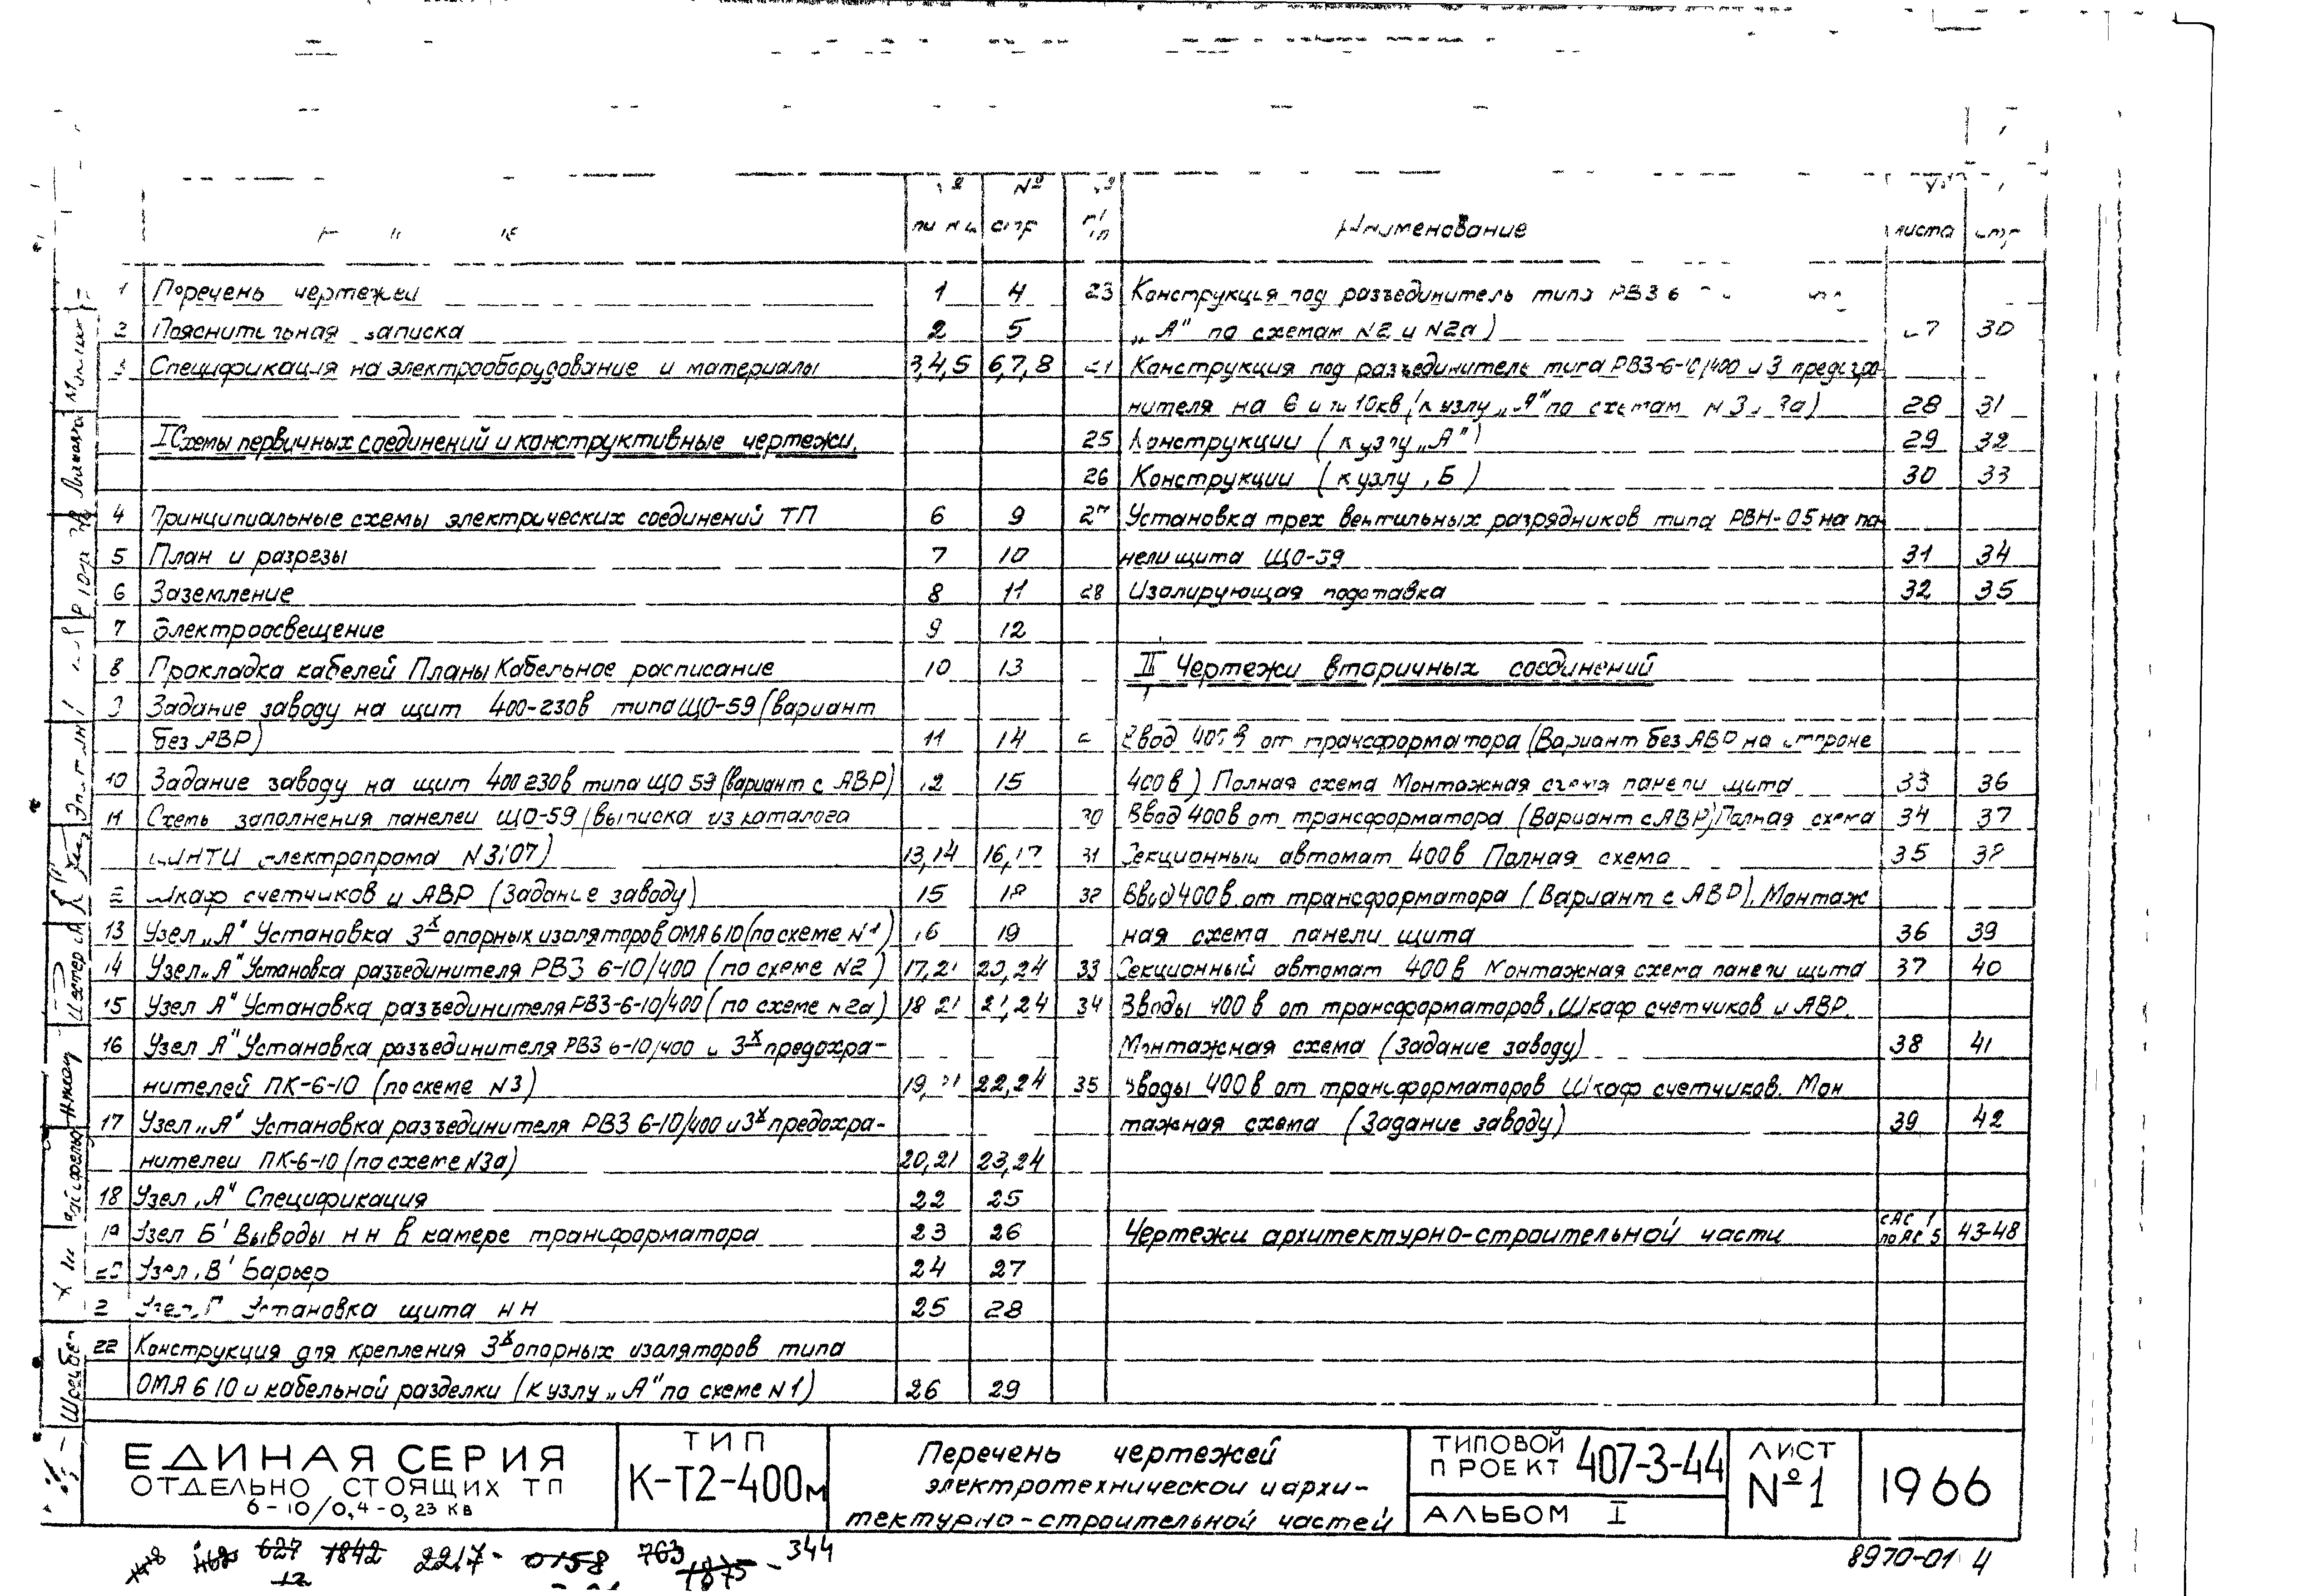 № №
стр
Наименование листа
1 Перечень чертежей 1 4
2 Пояснительная записка 2 5
3 Спецификация на электрооборудование и материалы 3,4,5 6,7,8
I Схемы первичных соединений и конструктивные чертежи.
4 Принципиальные схемы электрических соединений ТП 6 9
5 План и разрезы 7 10
6 Заземление 8 11
7 Электроосвещение 9 12
8 Прокладка кабелей Планы Кабельное расписание 10 13
9 Задание заводу на щит 400-230в типа ЩО-59 (вариант
без АВР) 11 14
10 Задание заводу на щит 400 230в типа ЩО 59 (вариант с АВР) 12 15
11 Схемы заполнения панелей ЩО-59 (выписка из каталога
ЦИНТИ электропрома 13,14 16,17
Шкаф счетчиков и АВР (Задание заводу) 15 18
13 Узел „А" Установка 3х опорных изоляторов ОМА 6 10 (по схеме N1) 16 19
14 Узел „А" Установка разъединителя РВЗ 6-10/400 (по схеме N2) 17,21 20,24
15 Узел А" Установка разъединителя РВЗ-6-10/400 (по схеме N2а) 18 21 21,24
16 Узел А" Установка разъединителя РВЗ 6-10/400 и 3х предохра-
нителей ПК-6-10 (по схеме N3) 19,21 22,24
17 Узел „А" Установка разъединителя РВЗ 6-10/400 и 3х предохра-
нителей ПК-6-10 (по схеме N3а) 20,21 23,24
18 Узел „А" Спецификация 22 25
19 Узел Б' Выводы НН в камере трансформатора 23 26
20 Узел „В' Барьер 24 27
Узел „Г Установка щита НН 25 28
22 Конструкция для крепления 3х опорных изоляторов типа
ОМА 6 10 и кабельной разделки (к узлу „А" по схеме N1) 26 29
23 Конструкция под разъединитель типа РВЗ 6
„А" по схемам N2 и N2а) 27 30
Конструкция под разъединитель типа РВЗ-6-10/400 и 3 предохра
нителя на 6 или 10кв (к узлу „А" по схемам N3 и 3а) 28 31
25 Конструкции (к узлу „А") 29 32
26 Конструкции (к узлу „Б) 30 33
27 Установка трех вентильных разрядников типа РВН-05 на па
нели щита ЩО-59 31 34
28 Изолирующая подставка 32 35
II Чертежи вторичных соединений
Ввод 400 в от трансформатора (Вариант без АВР на стороне
400в) Полная схема Монтажная схема панели щита 33 36
30 Ввод 400в от трансформатора (Вариант с АВР) Полная схема 34 37
31 Секционный автомат 400в Полная схема 35 38
32 Ввод 400в от трансформатора (Вариант с АВР). Монтаж
ная схема панели щита 36 39
33 Секционный автомат 400в Монтажная схема панели щита 37 40
34 Вводы 400в от трансформаторов. Шкаф счетчиков и АВР.
Монтажная схема (Задание заводу) 38 41
35 Вводы 400в от трансформаторов Шкаф счетчиков. Мон
тажная схема (Задание заводу) 39 42
Чертежи архитектурно-строительной части с АС 1 по АС 5 43-48
ЕДИНАЯ СЕРИЯ
ОТДЕЛЬНО СТОЯЩИХ ТП
6-10/0,4-0,23 КВ
ТИП
К-Т2-400м
Перечень чертежей
электротехнической и архи-
тектурно-строительной частей
ТИПОВОЙ
ПРОЕКТ 407-3-44
АЛЬБОМ I
ЛИСТ
№1
1966
627 1842 2217- 0158 763 1875- 344
12
8970-01 4